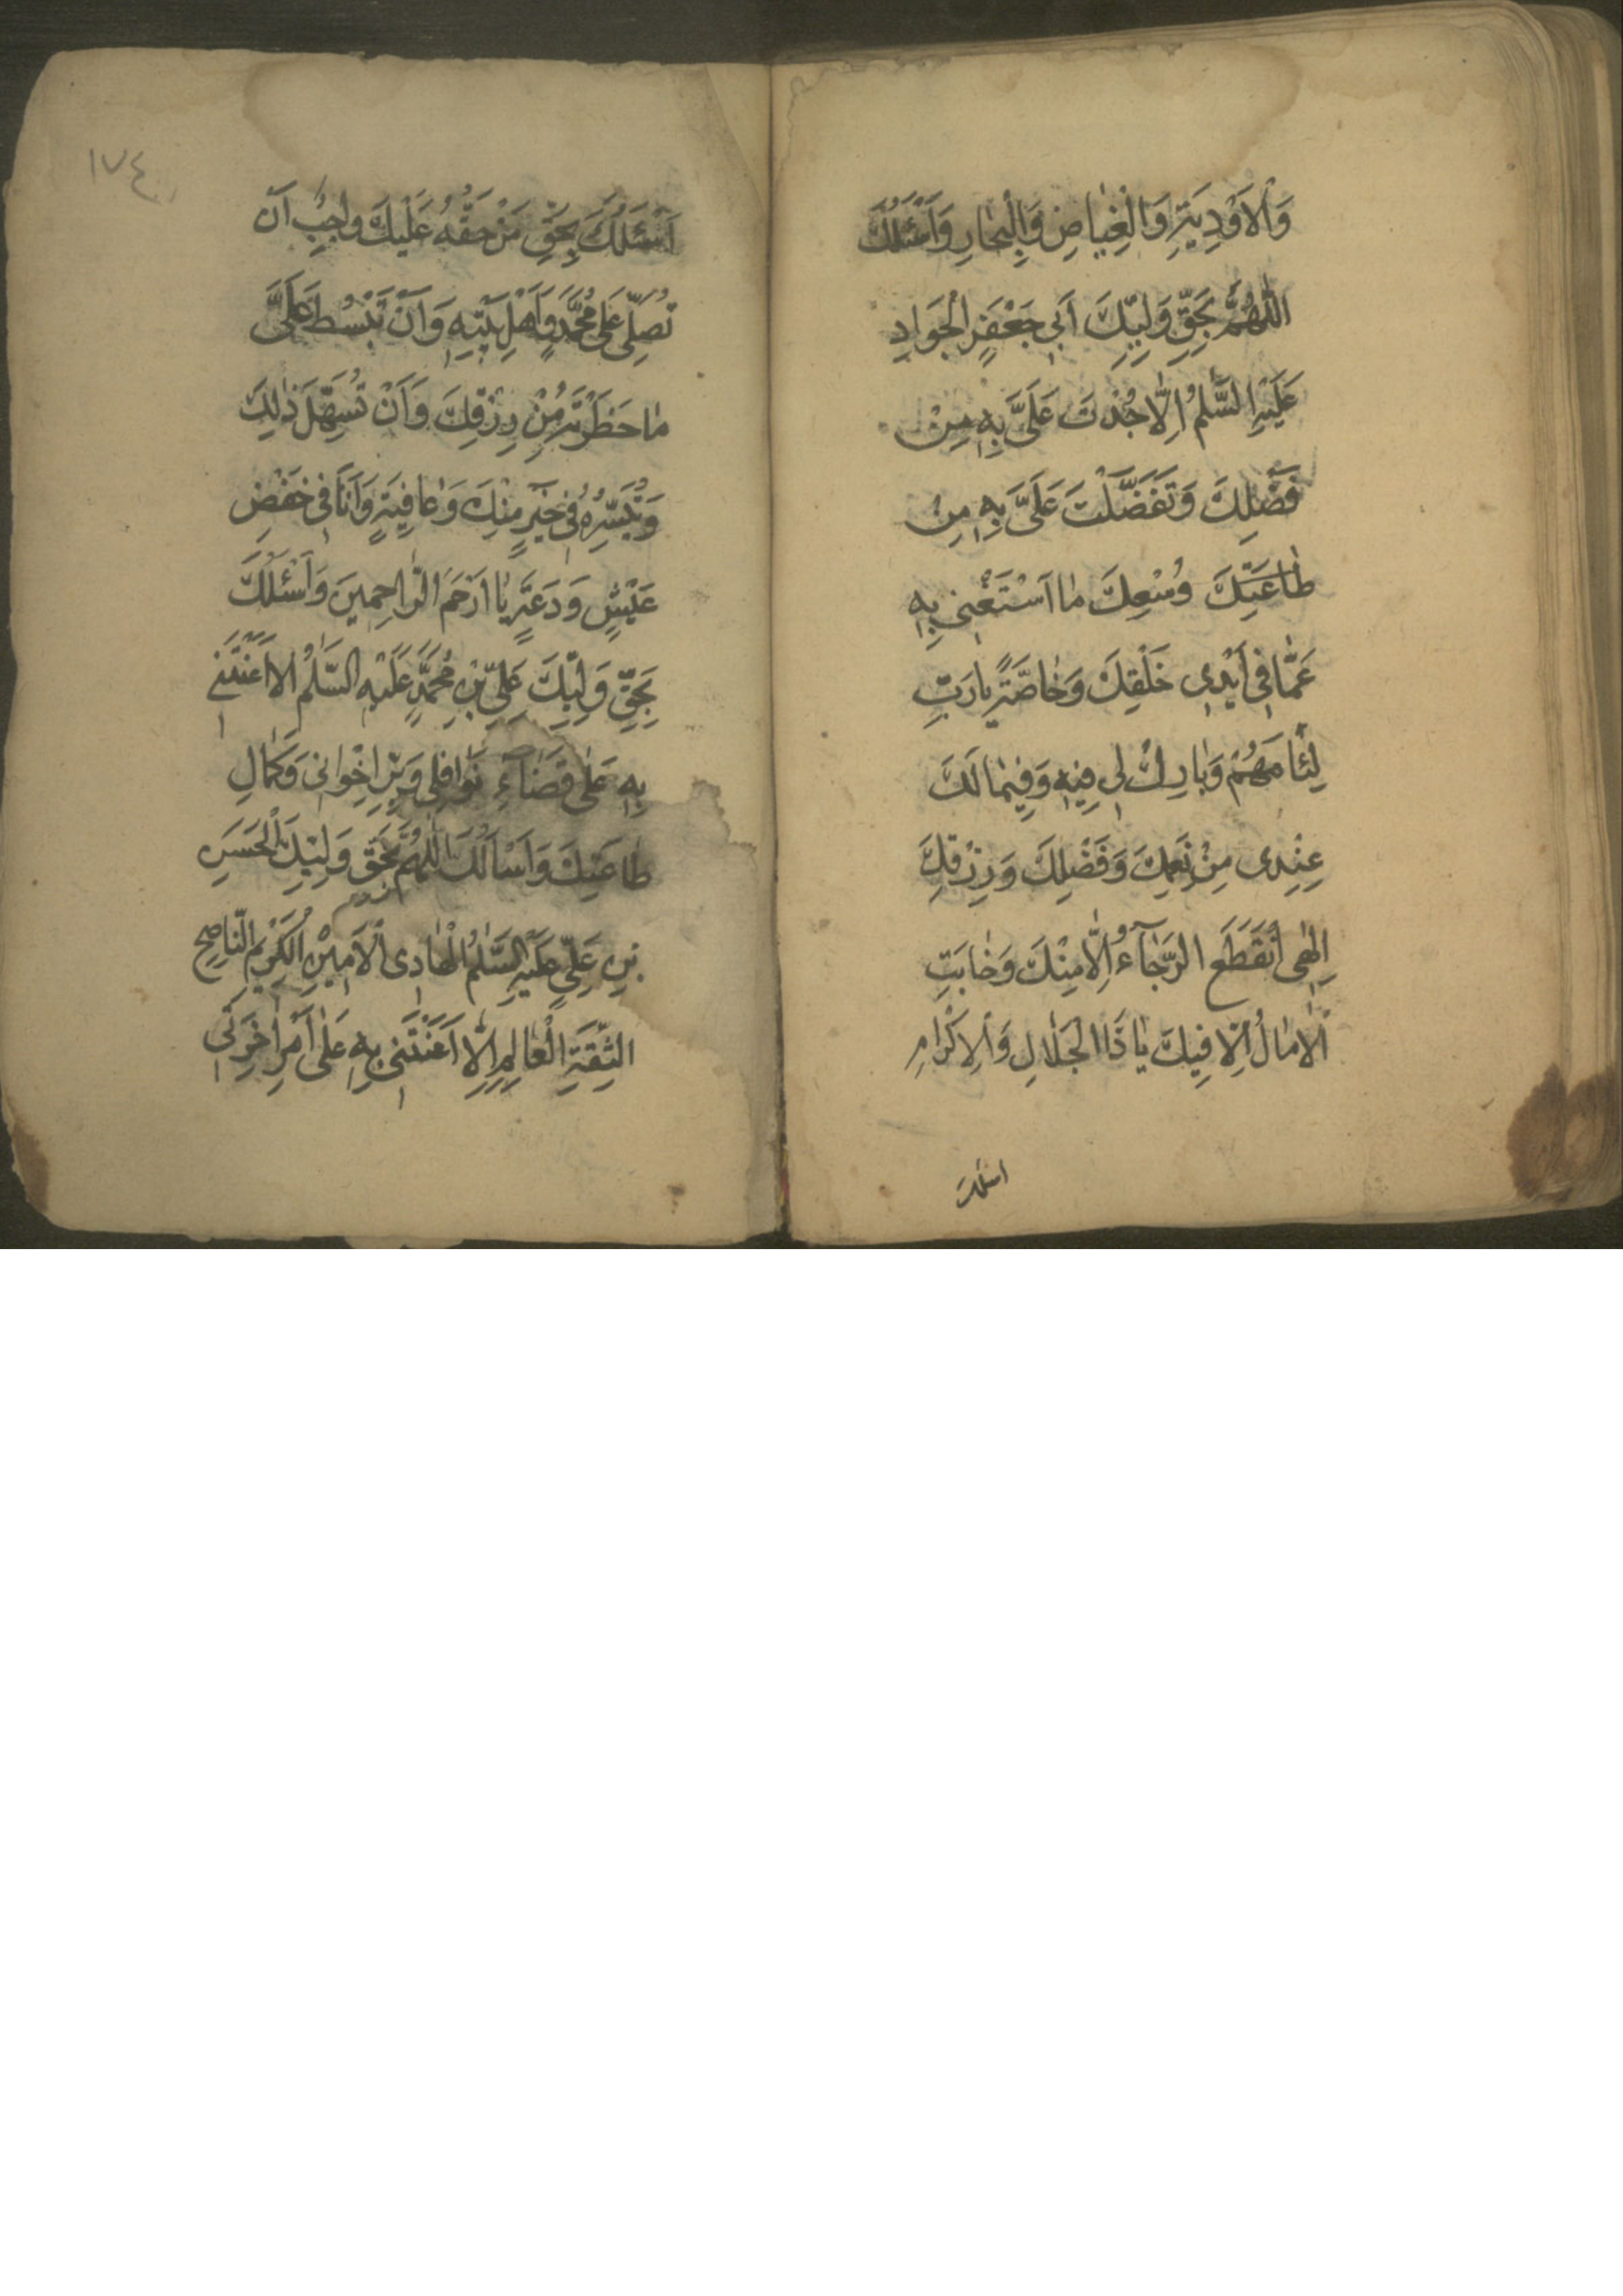 وَالْاَوْدِيَةِ وَالْغِيٰاضِ وَالْبِحٰارِ وَاَسْئَلُكَ
اللّٰهُمَّ بِحَقِّ وَلِيِّكَ اَبي جَعْفَرٍ الْجَوَادِ
عَلَيْهِ السَّلٰمُ اِلّٰا جُدْتَ عَلَيَّ بِهِ مِنْ
فَضْلِكَ وَتَفَضَّلْتَ عَلَيَّ بِهِ مِنْ
طٰاعَتِكَ وُسْعِكَ مٰا اَسْتَغْنى بِهِ
عَمّٰا فِي اَيْدِى خَلْقِكَ وَخٰاصَّةً يٰا رَبِّ
لِئٰامَهُمْ وَبٰارِكْ لِي فِيهِ وَفِيمٰا لَكَ
عِنْدِى مِنْ نِعَمِكَ وَفَضْلِكَ وَرِزْقِكَ
اِلٰهِى اْنْقَطَعَ الرَّجٰآءُ اِلّٰا مِنْكَ وَخٰابَتِ
الْاٰمٰالُ اِلّٰا فِيكَ يٰا ذَا الْجَلٰالِ وَالْاِكْرٰامِ
اسئلك
١٧٤
اَسْئَلُكَ بِحَقِّ مَنْ حَقُّهُ عَلَيْكَ وٰاجِبٌ اَنْ
تُصَلِّىَ عَلىٰ مُحَمَّدٍ وَاَهْلِ بَيْتِهِ وَاَنْ تَبْسُطَ عَلَىَّ
مٰا حَظَرْتَهُ مِنْ رِزْقِكَ وَاَنْ تُسَهِّلَ ذٰلِكَ
وَتُيَسِّرَهُ فِي خَيْرٍ مِنْكَ وَعٰافِيَةٍ وَاَنَا فِي خَفْضِ
عَيْشٍ وَدَعَةٍ يٰا اَرْحَمَ الرّٰاحِمِينَ وَاَسْئَلُكَ
بِحَقِّ وَلِيِّكَ عَلِيِّ بْنِ مُحَمَّدٍ عَلَيْهِ السَّلٰمُ الا اَعَنْتَنِي
بِهِ عَلىٰ قَضٰآءِ نَوٰافِلِي وَبِرِّ اِخْوٰانِى وَكَمٰالِ
طٰاعَتِكَ وَاَسْاَلُكَ اللّٰهُمَّ بِحَقِّ وَلِيِّكَ الْحَسَنِ
بْنِ عَلِيٍّ عَلَيْهِ السَّلٰمُ الْهٰادِى الْاَمِيْنِ الْكَرِيْمِ النّٰاصِحِ
الثِّقَةِ الْعٰالِمِ اِلّٰا اَعَنْتَنى بِهِ عَلىٰ اَمْرِ اٰخِرَتِي